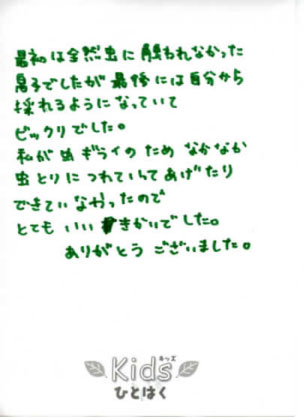 最初は全然虫に触われなかった
息子でしたが最後には自分から
採れるようになっていて
ビックリでした。
私が虫ギライのため なかなか
虫とりにつれていってあげたり
できていなかったので
とても いい きかいでした。
ありがとう ございました。
キッズ
Kids
ひとはく